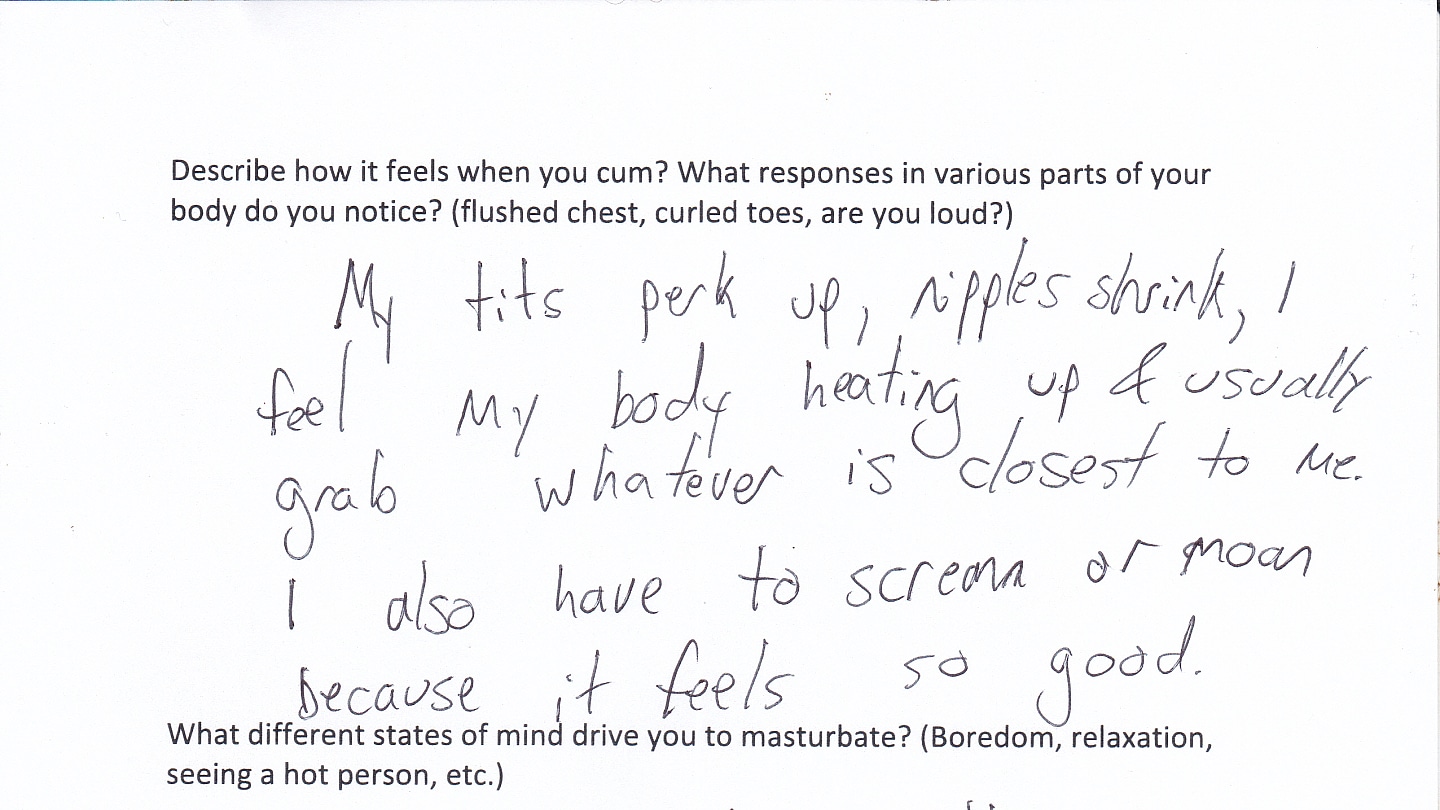 Describe how it feels when you cum? What responses in various parts of your
body do you notice? (flushed chest, curled toes, are you loud?)
My tits perk up, nipples shrink, I
feel my body heating up & usually
grab whatever is closest to me.
I also have to scream or moan
because it feels so good.
What different states of mind drive you to masturbate? (Boredom, relaxation,
seeing a hot person, etc.)